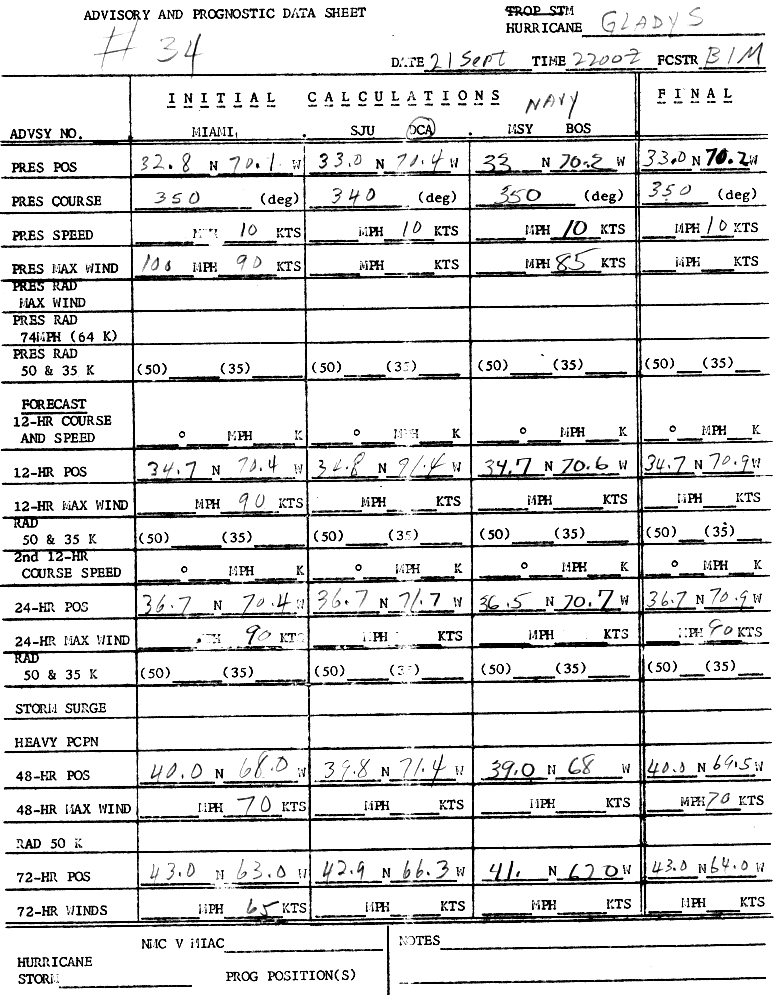 ADVISORY AND PROGNOSTIC DATA SHEET TROP STM
HURRICANE GLADYS
# 34
DATE 21 Sept TIME 2200Z FCSTR BIM
INITIAL CALCULATIONS NAVY FINAL
ADVSY NO. MIAMI SJU DCA MSY BOS
PRES POS 32.8 N 70.1 W 33.0 N 70.4 W 33 N 70.2 W 33.0 N 70.2 W
PRES COURSE 350 (deg) 340 (deg) 350 (deg) 350 (deg)
PRES SPEED MPH 10 KTS MPH 10 KTS MPH 10 KTS MPH 10 KTS
PRES MAX WIND 100 MPH 90 KTS MPH KTS MPH 85 KTS MPH KTS
PRES RAD
MAX WIND
PRES RAD
74MPH (64 K)
PRES RAD
50 & 35 K (50) (35) (50) (35) (50) (35) (50) (35)
FORECAST
12-HR COURSE
AND SPEED ° MPH K ° MPH K ° MPH K ° MPH K
12-HR POS 34.7 N 70.4 W 34.8 N 71.4 W 34.7 N 70.6 W 34.7 N 70.9 W
12-HR MAX WIND MPH 90 KTS MPH KTS MPH KTS MPH KTS
RAD
50 & 35 K (50) (35) (50) (35) (50) (35) (50) (35)
2nd 12-HR
COURSE SPEED ° MPH K ° MPH K ° MPH K ° MPH K
24-HR POS 36.7 N 70.4 W 36.7 N 71.7 W 36.5 N 70.7 W 36.7 N 70.9 W
24-HR MAX WIND MPH 90 KTS MPH KTS MPH KTS MPH 90 KTS
RAD
50 & 35 K (50) (35) (50) (35) (50) (35) (50) (35)
STORM SURGE
HEAVY PCPN
48-HR POS 40.0 N 68.0 W 39.8 N 71.4 W 39.0 N 68 W 40.0 N 69.5 W
48-HR MAX WIND MPH 70 KTS MPH KTS MPH KTS MPH 70 KTS
RAD 50 K
72-HR POS 43.0 N 63.0 W 42.9 N 66.3 W 41. N 620 W 43.0 N 64.0 W
72-HR WINDS MPH 65 KTS MPH KTS MPH KTS MPH KTS
NMC V MIAC NOTES
HURRICANE
STORM PROG POSITION(S)